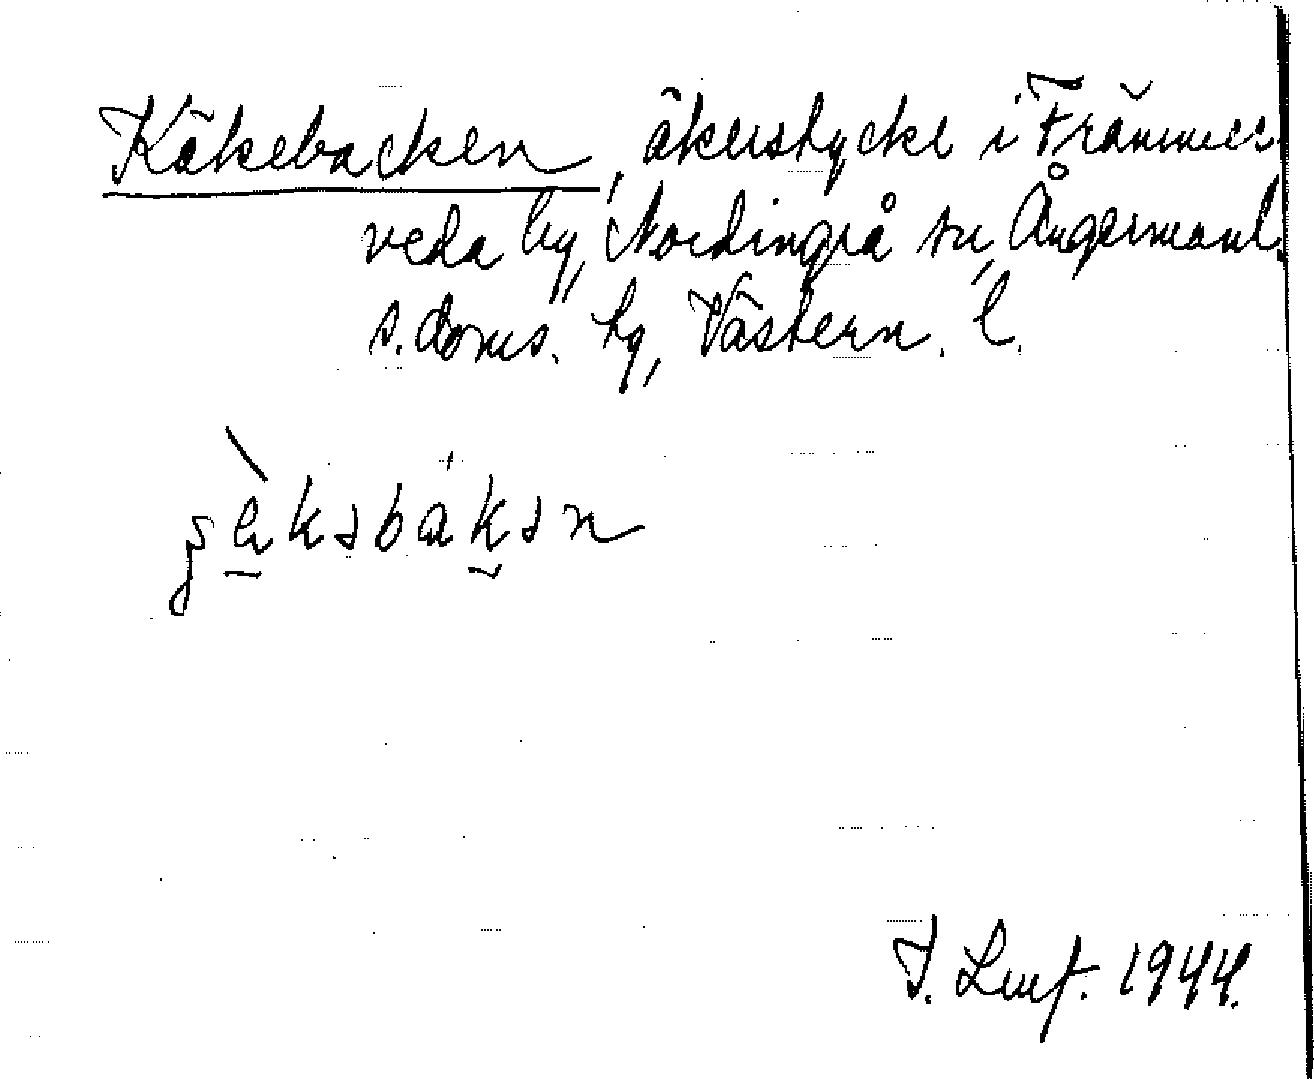 Käkebacken, åkerstycke i Främmer
veda by, Nordingrå sn, Ångermanl.
s. doms. hg, Västern. l.
kəbakən
1944.